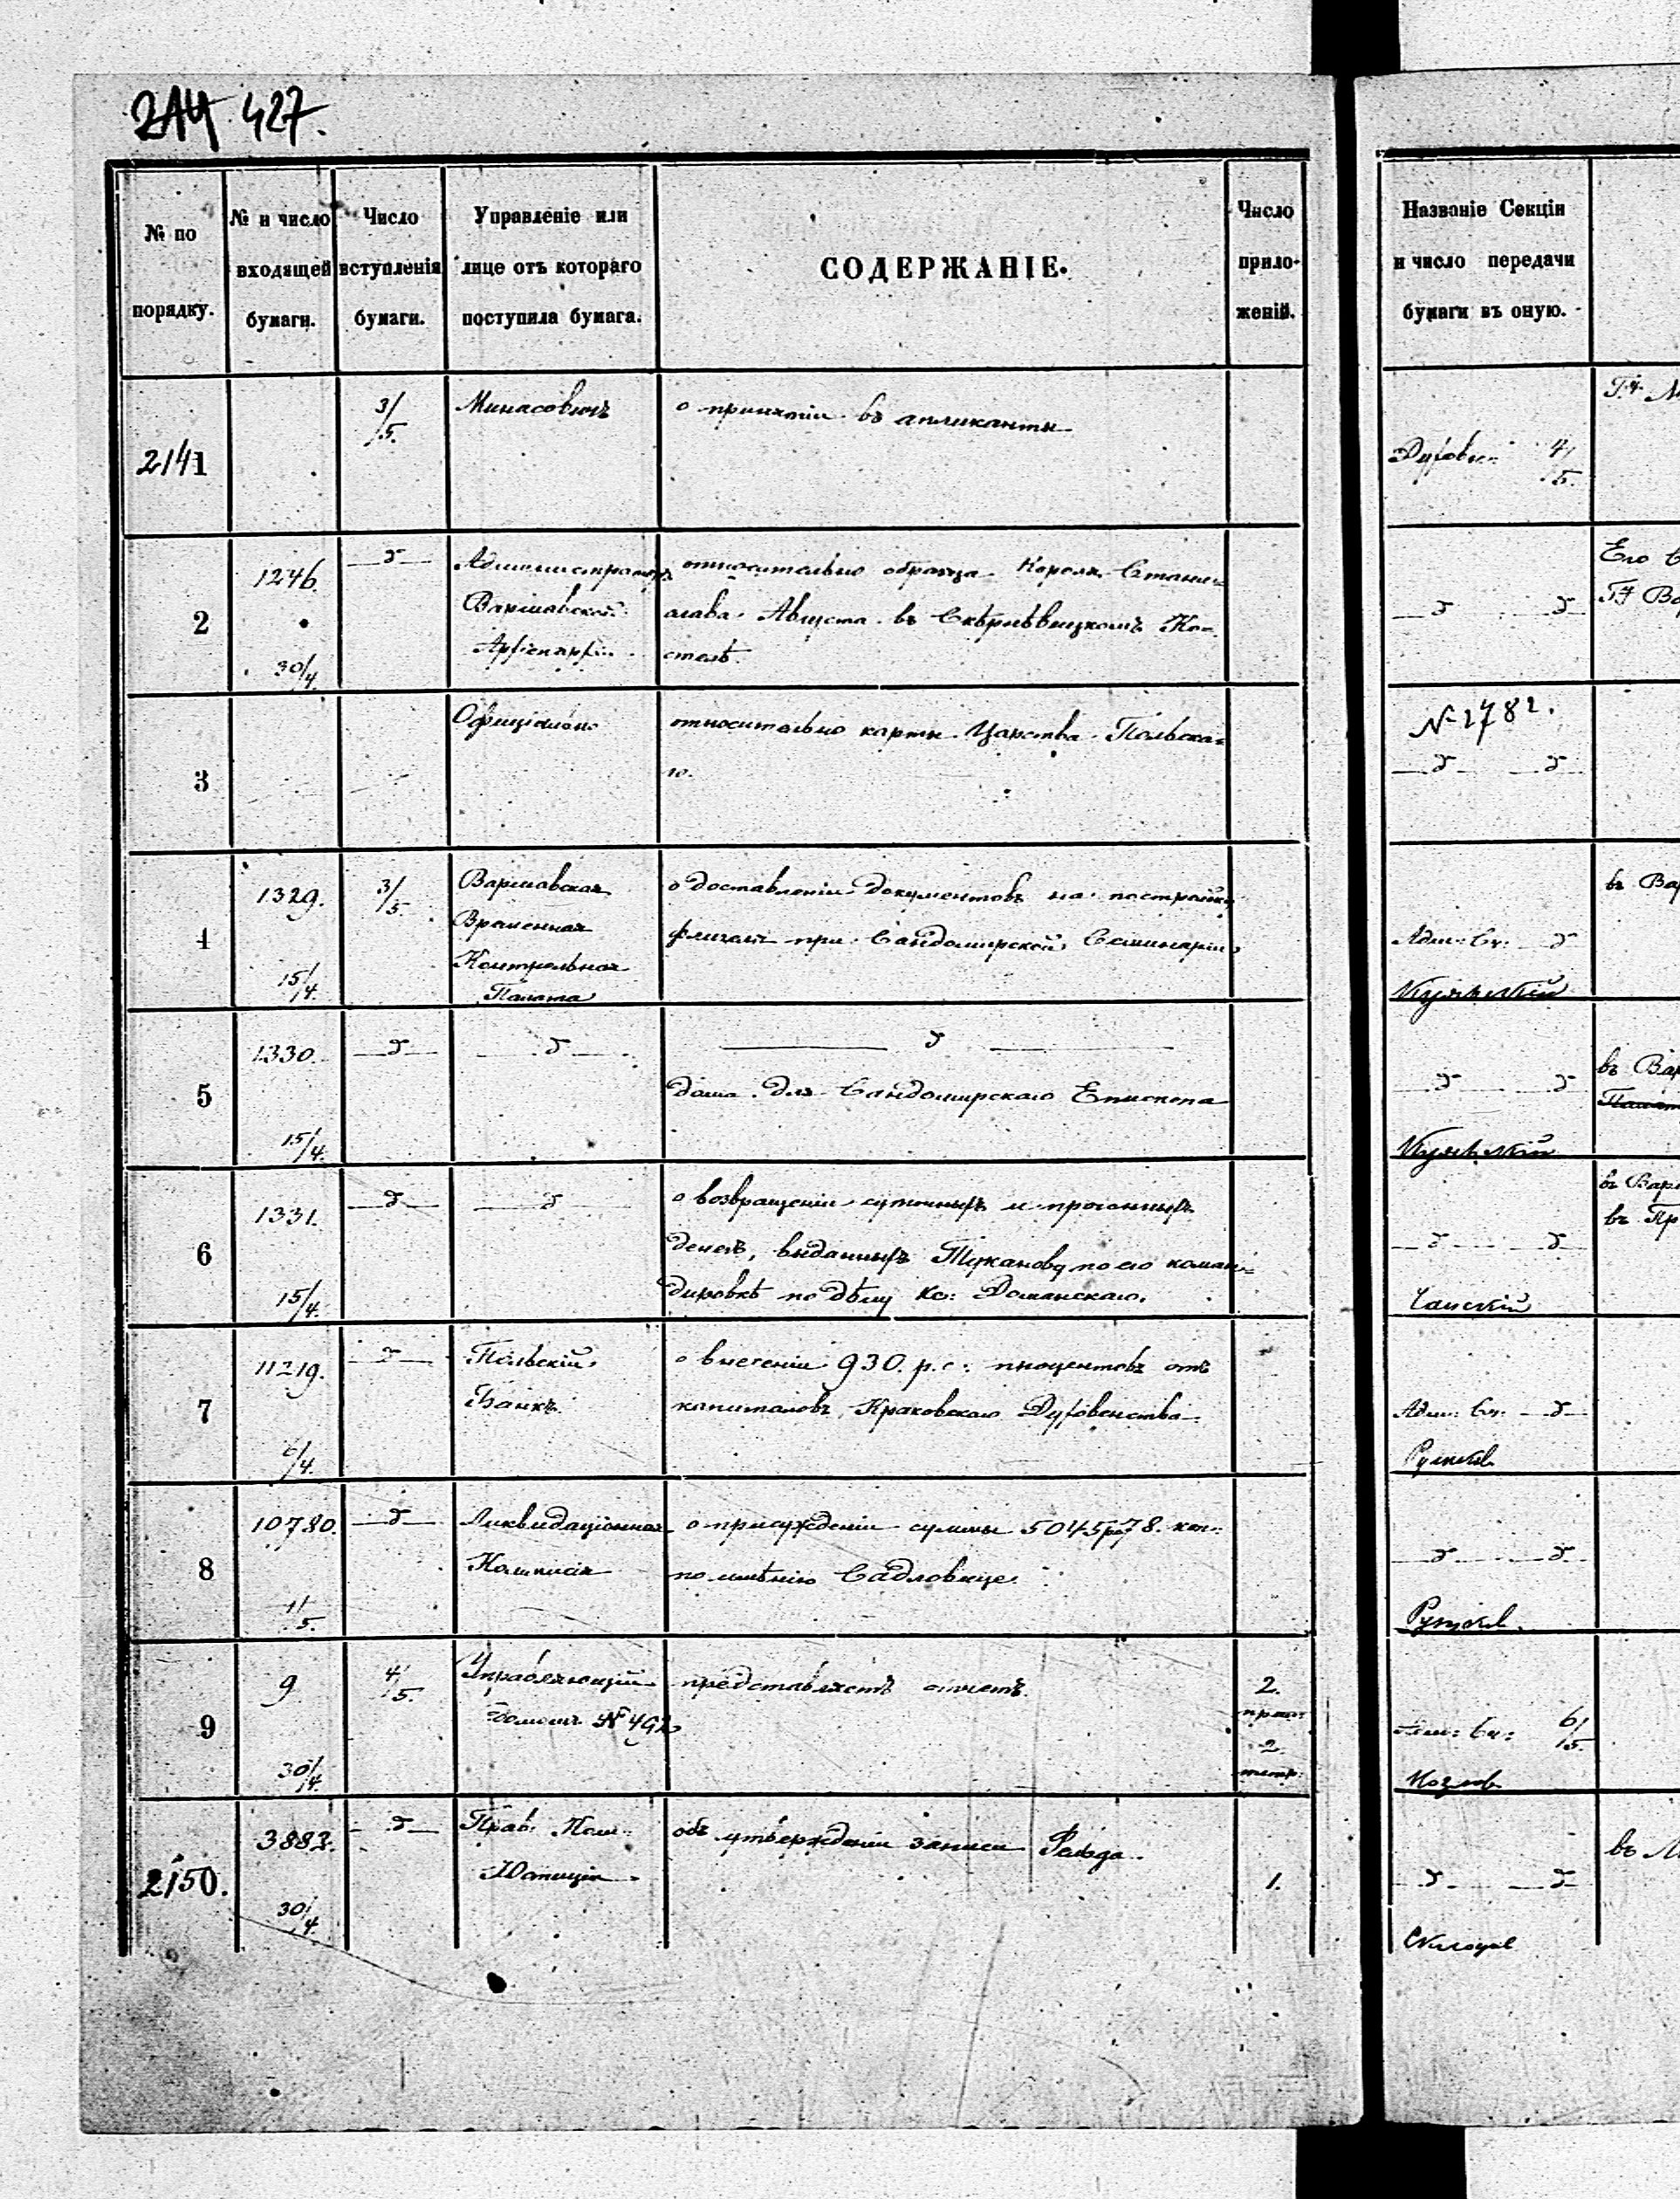 427.
№ по порядку.
№ и число входящей бумаги.
Число вступленія бумаги.
Управленіе или лице отъ котораго поступила бумага.
СОДЕРЖАНІЕ.
Число приложеній.
Названіе Секціи и число передачи бумаги въ оную.
2141
3/5.
Минасовичъ
о принятіи въ апликанты
Духовн:
4/5.
2
1246.
30/4.
д
Администраторъ
Варшавской
Архіепархіи
относительно образа Короля Стани=
слава Августа въ Скѣрнѣвицкомъ Ко-
стелѣ.
д д
Его
3
относительно карты Царства Польска=
го.
№ 2782.
д д
4
1329.
15/4.
3/5.
Варшавская
Временная
Контрольная
Палата
о доставленіи документовъ на постройку
флигеля при Сандомирской Семинаріи
Адм: Сч: д
въ Вар
5
1330.
15/4.
д
д
д
дома для Сандомирскаго Епископа
д д
въ Вар
6
1331.
15/4.
д
д
о возвращеніи суточныхъ и прогонныхъ
денегъ, выданныхъ Туканову по его коман=
дировкѣ по дѣлу Кс: Доманскаго.
д д
въ Варш
въ Пр
7
11219.
д
Польскій
Банкъ
о внесеніи 930. р. с: процентовъ отъ
капиталовъ Краковскаго Духовенства
Адм: Сч: д
8
10780.
1/5.
д
Ликвидаціонная
Коммисія
о присужденіи суммы 5045 р 78. коп:
по имѣнію Садловице
д д
9
9
30/4.
4/5.
Управляющій
домомъ № 492
представляетъ отчетъ.
2.
2.
6/5.
Козлов
2150.
3883.
30/4.
д
Прав: Ком:
Юстиціи
объ утвержденіи записи Фельда
1.
д д
въ